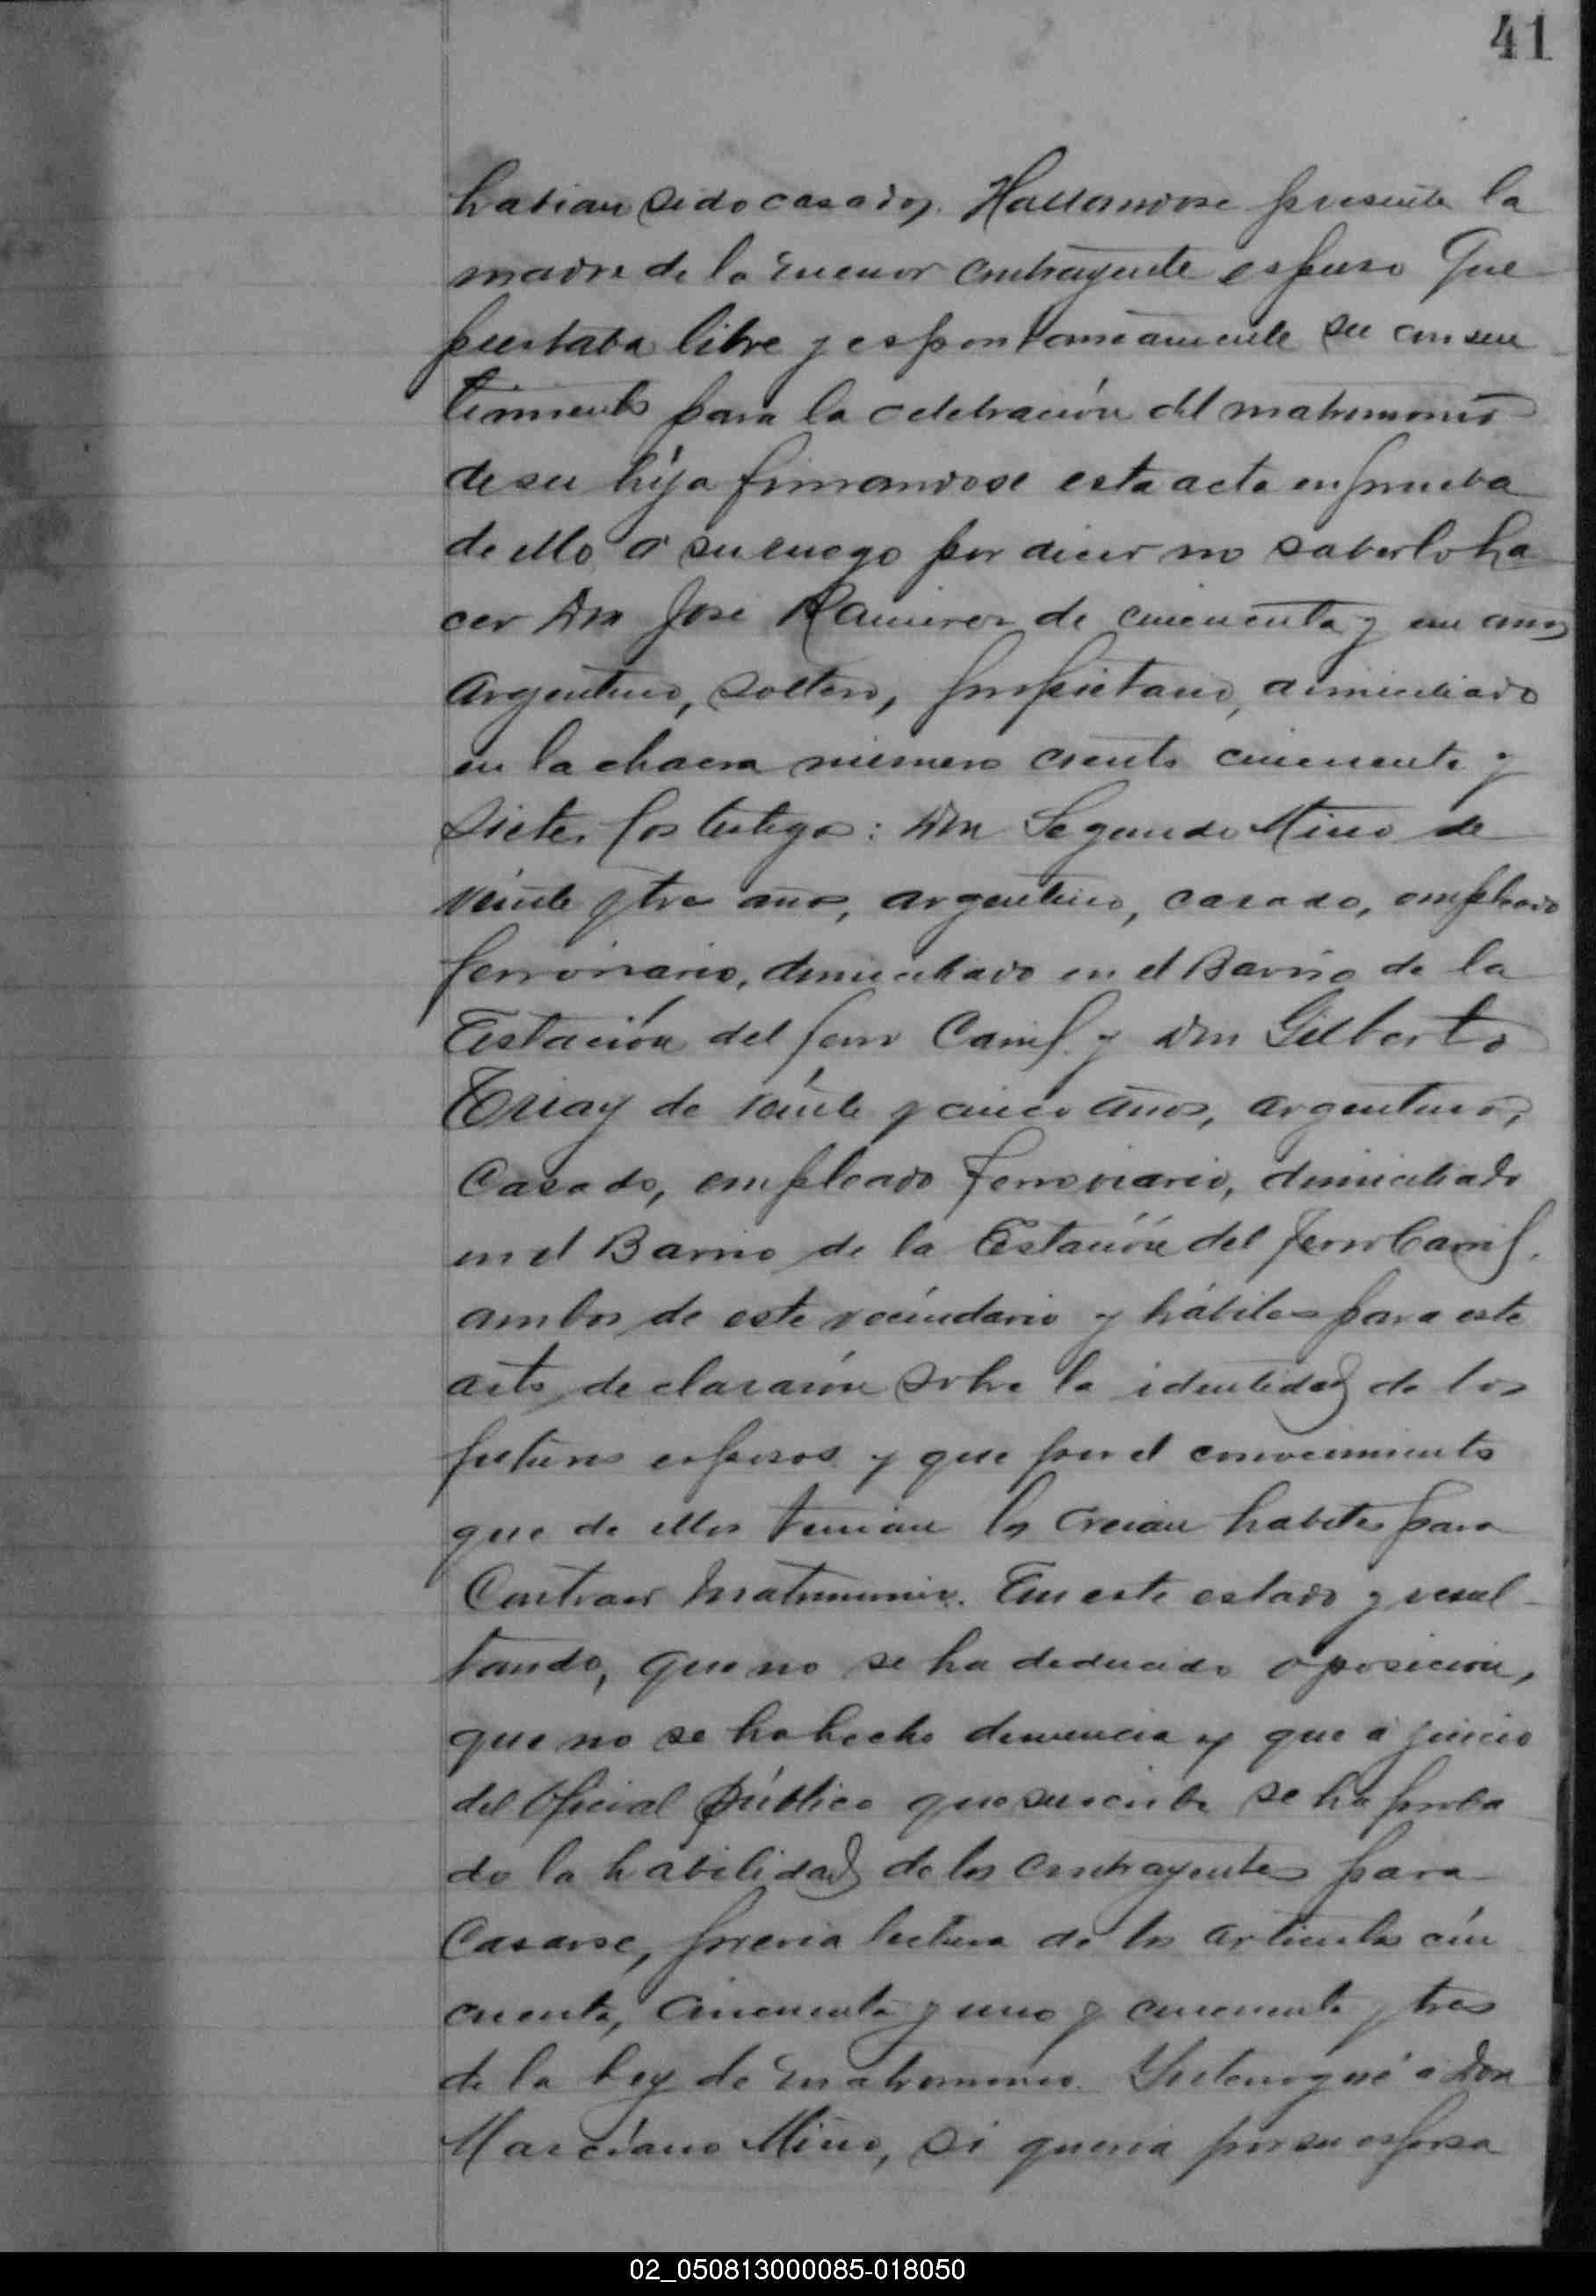 41
habian sido casados. Hallandose presente la
madre de la menor contrayente espuso que
prestaba libre y espontaneamente su consen
timiento para la celebración del matrimonio
de su hija firmandose esta acta en prueba
de ello á su ruego por decir no saberlo ha
cer Don José Ramirez de cincuenta y un años
Argentino, soltero, propietario, domiciliado
en la chacra número ciento cincuenta y
siete. Los testigos: Don Segundo Mino de
veinte y tres años, argentino, casado, empleado
ferroviario, domiciliado en el Barrio de la
Estación del ferro Carril y Don Gilberto
de veinte y cinco años, argentino,
Casado, empleado ferroviario, domiciliado
en el Barrio de la Estación del ferro Carril.
ambos de este vecindario y hábiles para este
acto, declararon sobre la identidad de los
futuros esposos y que por el conocimiento
que de ellos tenian los creian habiles para
Contraer Matrimonio. En este estado y resul-
tando, que no se ha deducido oposición,
que no se ha hecho denuncia y que á juicio
del Oficial Público que suscribe se ha proba
do la habilidad de los contrayentes para
Casarse, previa lectura de los artículos cin
cuenta, cincuenta y uno y cincuenta y tres
de la Ley de matrimonio. Interrogué a Don
Marciano Mino, si queria por su esposa
02_050813000085-018050